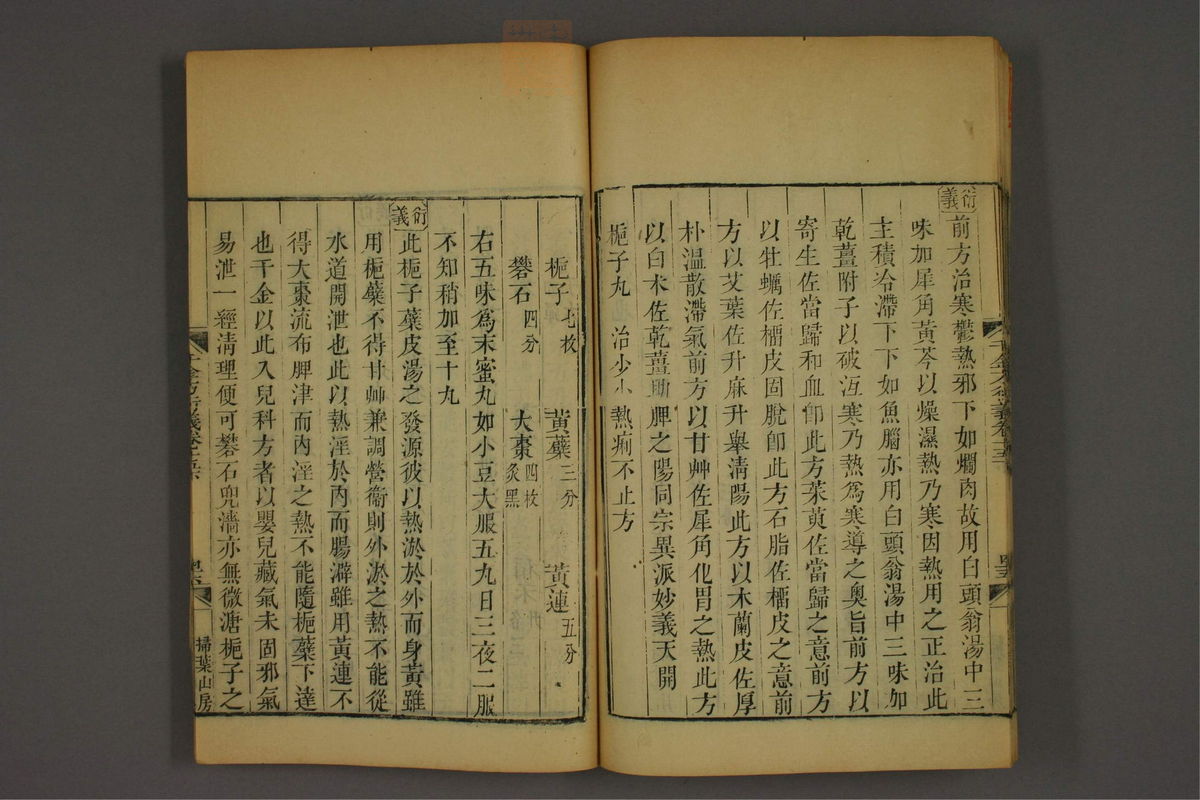 衍義
前方治寒鬱熱邪下如爛肉故用白頭翁湯中三
味加犀角黃芩以燥濕熱乃寒因熱用之正治此
主積冷滯下下如魚腦亦用白頭翁湯中三味加
乾薑附子以破沍寒乃熱為寒導之奧旨前方以
寄生佐當歸和血卽此方茱萸佐當歸之意前方
以牡蠣佐橊皮固脫卽此方石脂佐橊皮之意前
方以艾葉佐升麻升舉淸陽此方以木蘭皮佐厚
朴溫散滯氣前方以甘艸佐犀角化胃之熱此方
以白朮佐乾薑助脾之陽同宗異派妙義天開
梔子丸 治少小熱痢不止方
梔子七枚 黃蘗三分 黃連五分
礬石四分 大棗四枚炙黑
右五味爲末蜜丸如小豆大服五丸日三夜二服
不知稍加至十丸
衍義
此梔子蘗皮湯之發源彼以熱淤於外而身黃雖
用梔蘗不得甘艸兼調營衞則外淤之熱不能從
水道開泄也此以熱淫於內而腸澼雖用黃連不
得大棗流布脾津而內淫之熱不能隨梔蘗下達
也千金以此入兒科方者以嬰兒藏氣未固邪氣
易泄一經淸理便可礬石兜濇亦無微溏梔子之
千金方衍義卷十五
掃葉山房